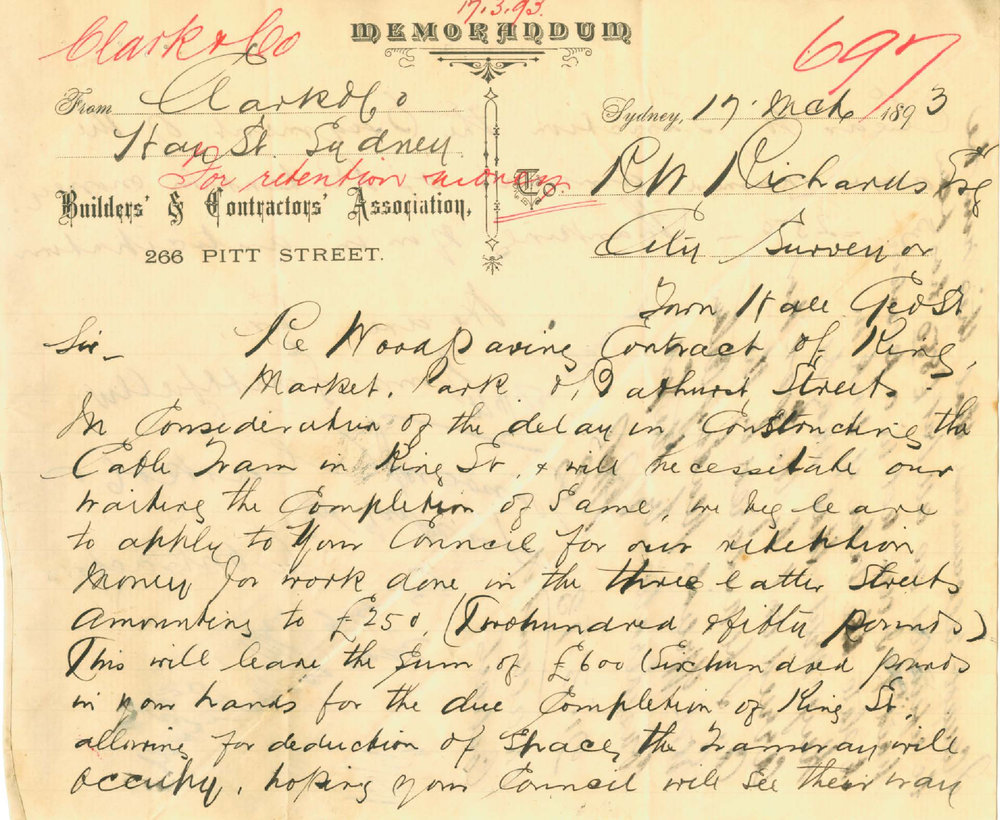 17.3.93.
MEMORANDUM
Clark & Co
697
From Clark & Co
Sydney, 17 Mch 1893
Hay St. Sydney
For retention money
To. R W Richards Esq
Builders' & Contractors' Association,
266 PITT STREET.
City Surveyor
Town Hall Geo St
Sir - Re Wood Paving Contract of King,
Market, Park & Bathurst Streets
In Consideration of the delay in Constructing the
Cable Tram in King St. & will necessitate our
waiting the Completion of Same, we beg leave
to apply to Your Council for our retention
Money for work done in the three latter Streets
amounting to £250, (Two hundred & fifty pounds)
This will leave the Sum of £600 (Six hundred pounds
in your hands for the due Completion of King St.
allowing for deduction of Space, the Tramway will
occupy, hoping your Council will see their way